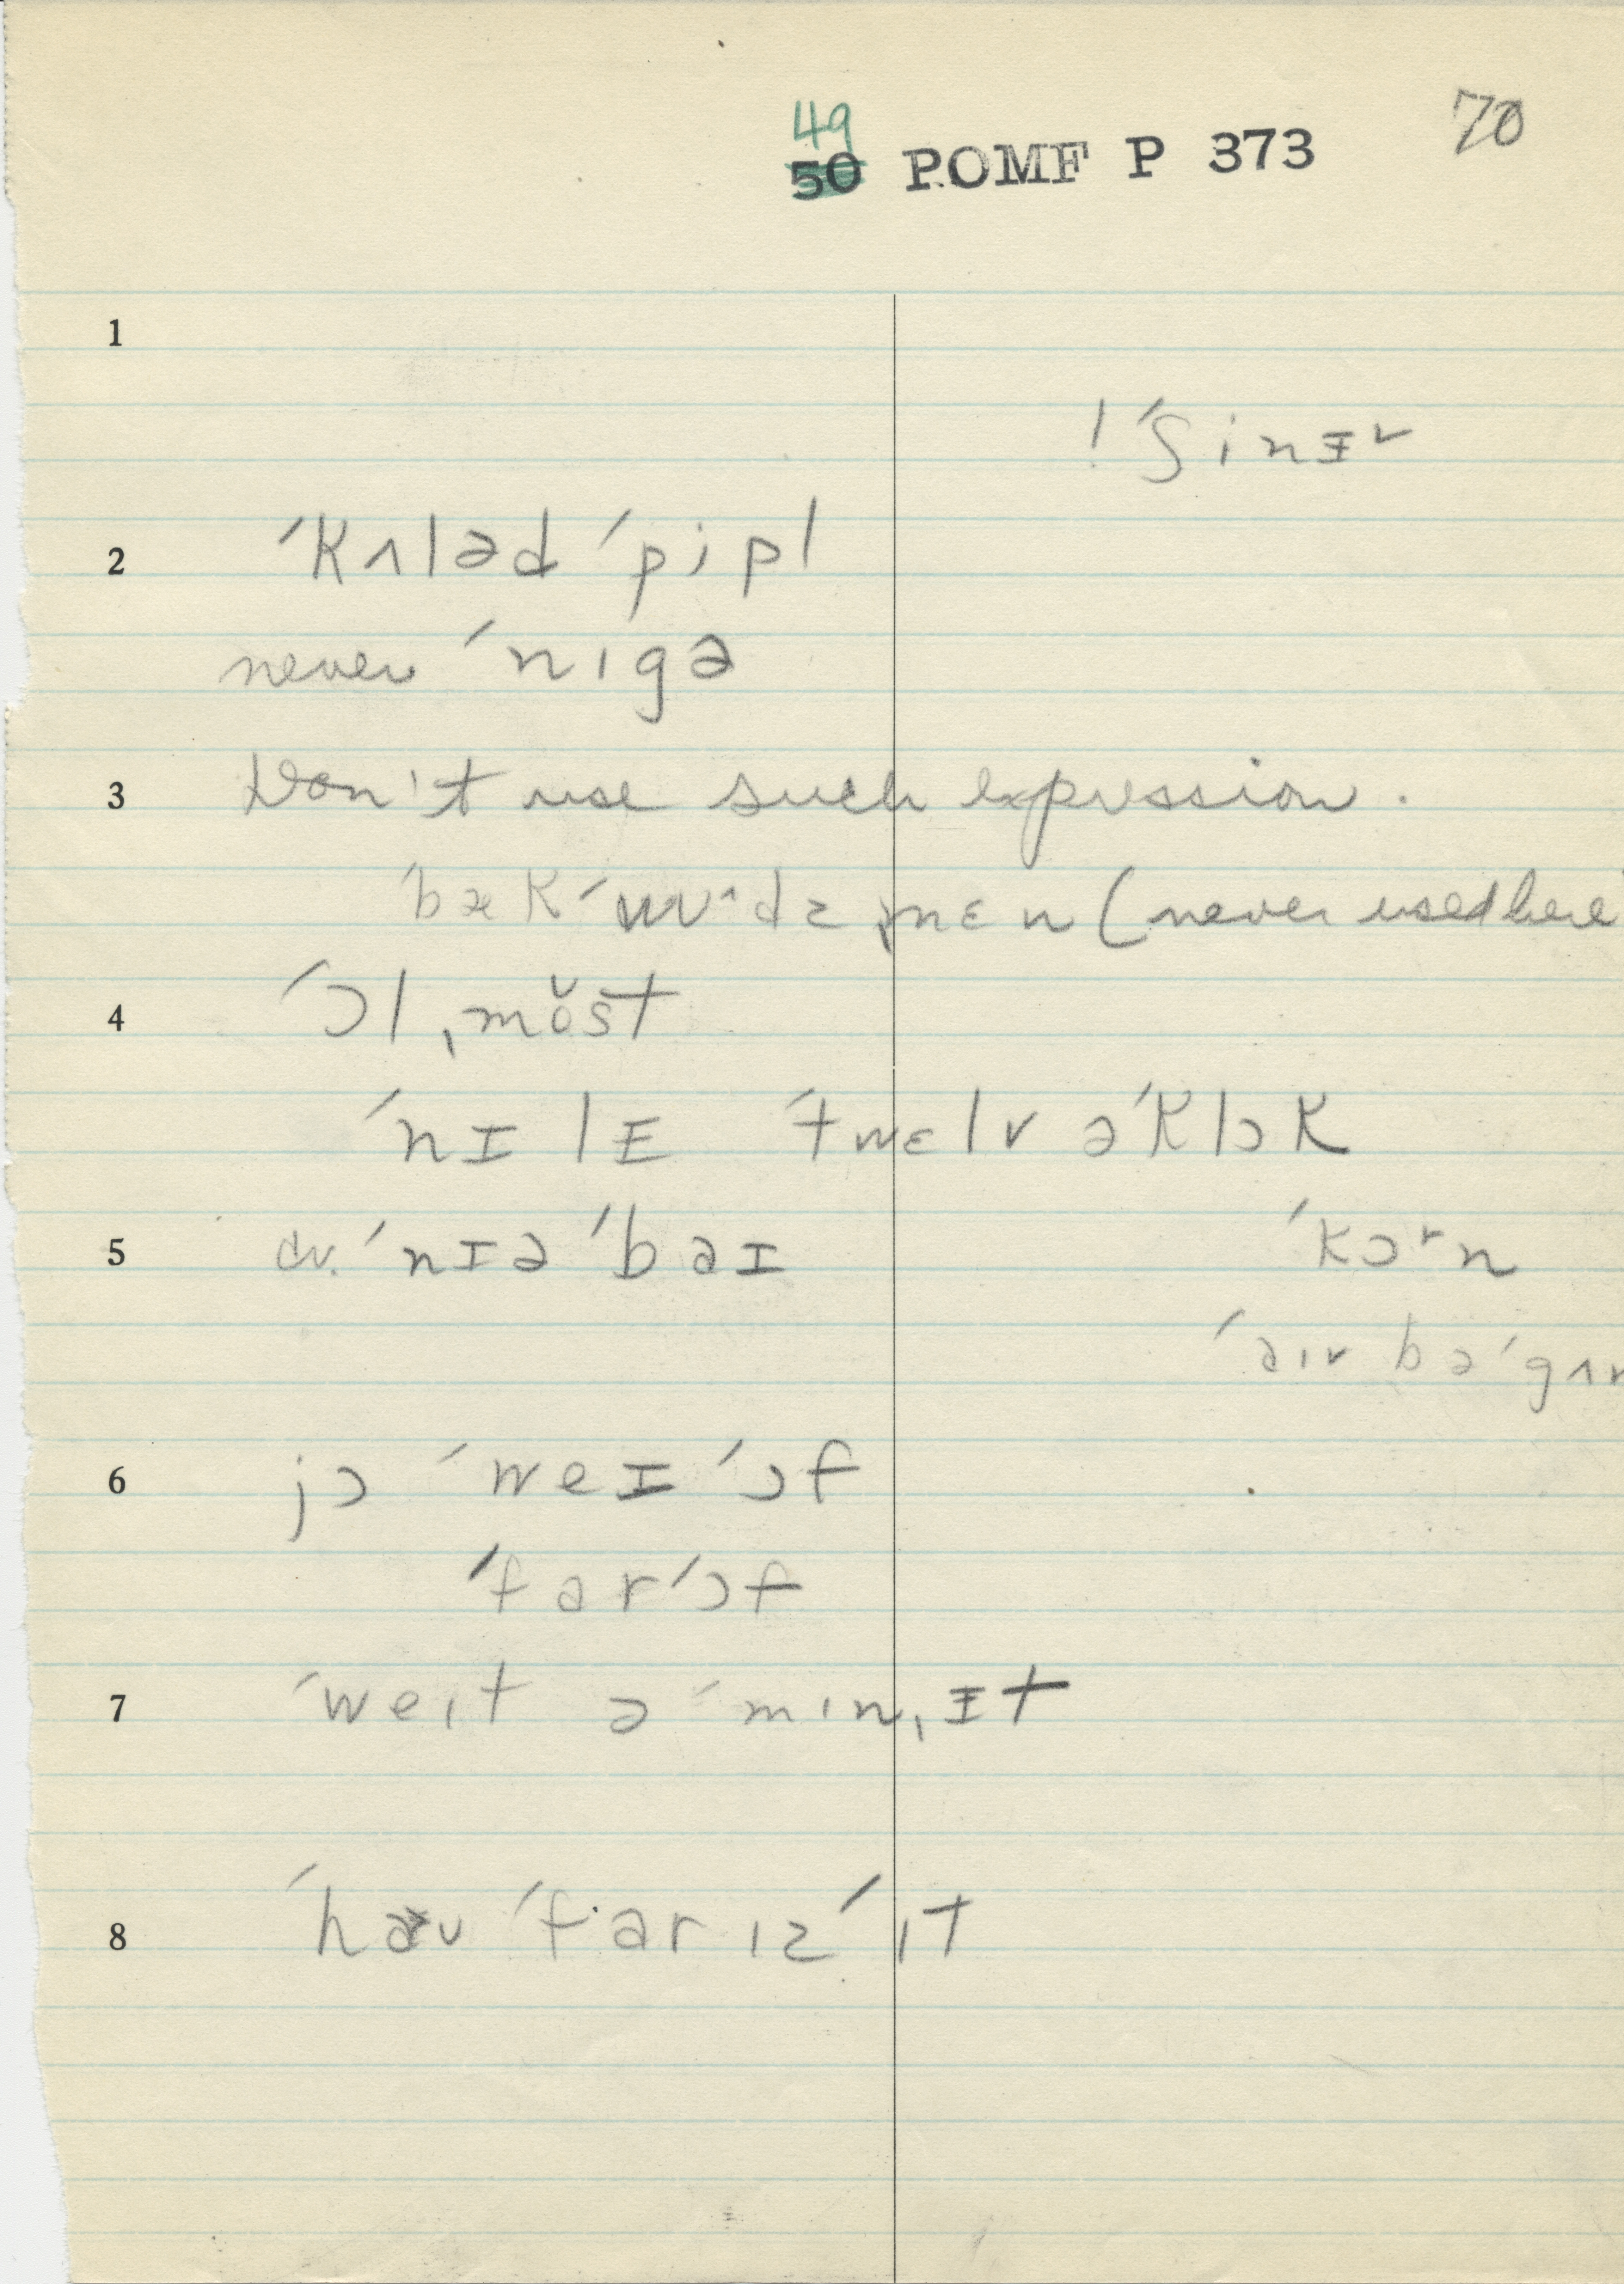 49
50 POMF P 373 70
1
! ˈʃinɪr
2 ˈkʌləd ˈpipl
never ˈnɪgə
3 Don't use such expression.
(never used here
4 ˈɔl ˌmŏst
ˈnɪlɪ ˈtwɛlv əˈklɔk
5 ˈnɪə ˈbaɪ ˈkɔrn
6 jɔ ˈweɪ ˈɔf
ˈfar ˈɔf
7 ˈweɪt ə ˈmɪnˌɪt
8 ˈfar ɪz ˈɪt